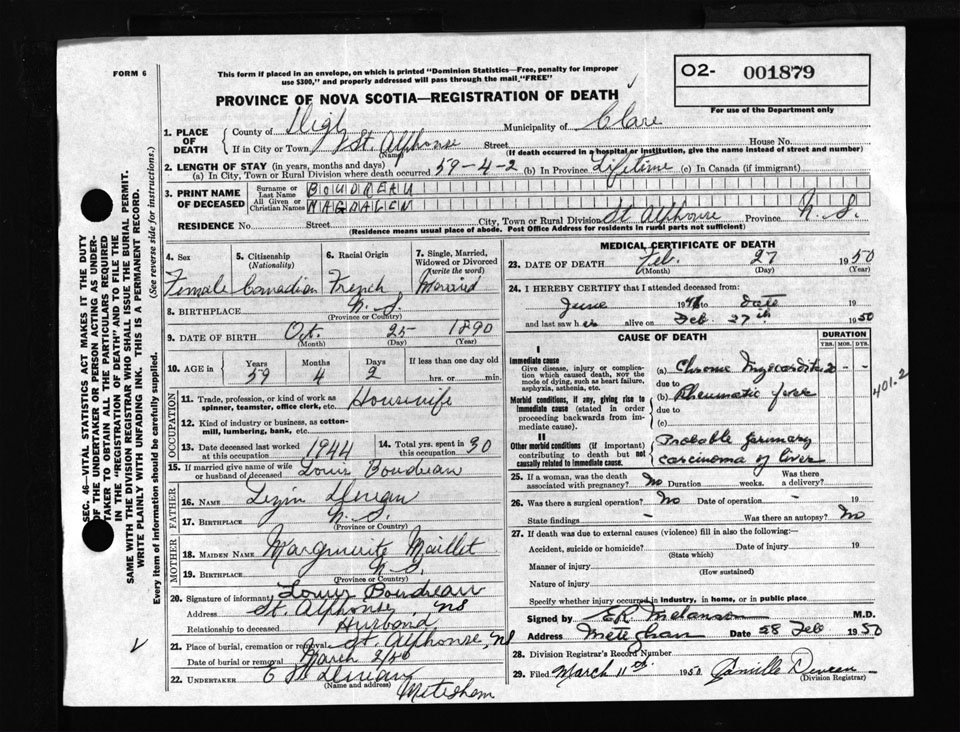 FORM 6
This form if placed in an envelope, on which is printed "Dominion Statistics—Free, penalty for improper
use $300," and properly addressed will pass through the mail "FREE"
O2- 001879
For use of the Department only
PROVINCE OF NOVA SCOTIA—REGISTRATION OF DEATH
1. PLACE OF DEATH
County of Digby Municipality of Clare
If in City or Town St. Alphonse (Name) Street House No.
(If death occurred in a hospital or institution, give the name instead of street and number)
2. LENGTH OF STAY (in years, months and days)
(a) In City, Town or Rural Division where death occurred 59-4-2 (b) In Province Lifetime (c) In Canada (if immigrant)
3. PRINT NAME OF DECEASED
Surname or Last Name BOUDREAU
All Given or Christian Names MAGDALEN
RESIDENCE No. Street City, Town or Rural Division St Alphonse Province N. S.
(Residence means usual place of abode. Post Office Address for residents in rural parts not sufficient)
4. Sex Female
5. Citizenship (Nationality) Canadian
6. Racial Origin French
7. Single, Married, Widowed or Divorced (write the word) Married
8. BIRTHPLACE N. S. (Province or Country)
9. DATE OF BIRTH Oct. (Month) 25 (Day) 1890 (Year)
10. AGE in Years 59 Months 4 Days 2 If less than one day old hrs. or min.
OCCUPATION
11. Trade, profession, or kind of work as spinner, teamster, office clerk, etc. Housewife
12. Kind of industry or business, as cotton-mill, lumbering, bank, etc.
13. Date deceased last worked at this occupation 1944
14. Total yrs. spent in this occupation 30
15. If married give name of wife or husband of deceased Louis Boudreau
FATHER
16. NAME
17. BIRTHPLACE N. S. (Province or Country)
MOTHER
18. MAIDEN NAME Marguirite Maillet
19. BIRTHPLACE N. S. (Province or Country)
20. Signature of informant Louis Boudreau
Address St. Alphonse, NS
Relationship to deceased Husband
21. Place of burial, cremation or removal St. Alphonse, NS
Date of burial or removal March 2/50
22. UNDERTAKER (Name and address)
MEDICAL CERTIFICATE OF DEATH
23. DATE OF DEATH Feb. (Month) 27 (Day) 1950 (Year)
24. I HEREBY CERTIFY that I attended deceased from:
June 19 to Date 19
and last saw her alive on Feb. 27th 1950
CAUSE OF DEATH
DURATION YRS. MOS. DYS.
I
Immediate cause
Give disease, injury or complication which caused death, NOT the mode of dying, such as heart failure, asphyxia, asthenia, etc.
(a) Chronic Myocarditis
due to
Morbid conditions, if any, giving rise to immediate cause (stated in order proceeding backwards from immediate cause).
(b) Rheumatic fever
due to
(c)
401.2
II
Other morbid conditions (if important) contributing to death but not causally related to immediate cause.
Probable primary
carcinoma of liver
25. If a woman, was the death associated with pregnancy? No Duration weeks. Was there a delivery?
26. Was there a surgical operation? No Date of operation - 19
State findings - Was there an autopsy? No
27. If death was due to external causes (violence) fill in also the following:—
Accident, suicide or homicide? (State which) Date of injury 19
Manner of injury (How sustained)
Nature of injury
Specify whether injury occurred in industry, in home, or in public place
Signed by E.R. Melanson M.D.
Address Meteghan Date 28 Feb 1950
28. Division Registrar's Record Number
29. Filed March 11th 1950 (Division Registrar)
SEC. 46—VITAL STATISTICS ACT MAKES IT THE DUTY
OF THE UNDERTAKER OR PERSON ACTING AS UNDERTAKER
TO OBTAIN ALL THE PARTICULARS REQUIRED
IN THE "REGISTRATION OF DEATH" AND TO FILE THE
SAME WITH THE DIVISION REGISTRAR WHO SHALL ISSUE THE BURIAL PERMIT.
WRITE PLAINLY WITH UNFADING INK. THIS IS A PERMANENT RECORD.
Every item of information should be carefully supplied. (See reverse side for instructions.)